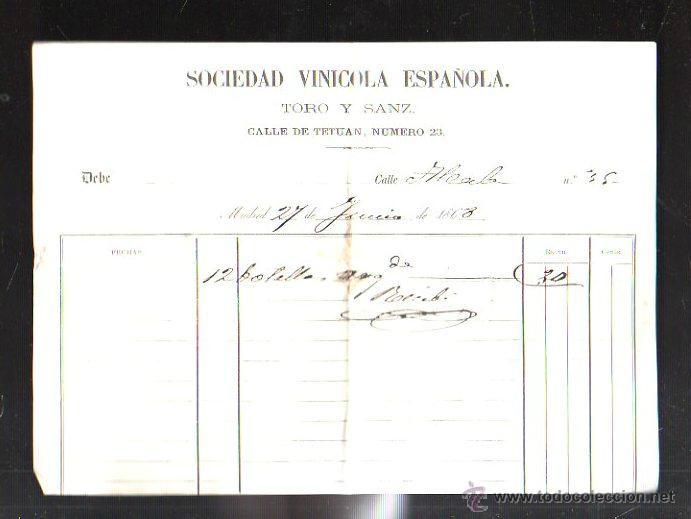 SOCIEDAD VINICOLA ESPAÑOLA.
TORO Y SANZ.
CALLE DE TETUAN, NUMERO 23.
Debe Calle Alcala n.º 35
Madrid 27 de Junio de 1868
FECHAS Rs. vn. Cents.
12 botellas de 20
Recibi
www.todocoleccion.net